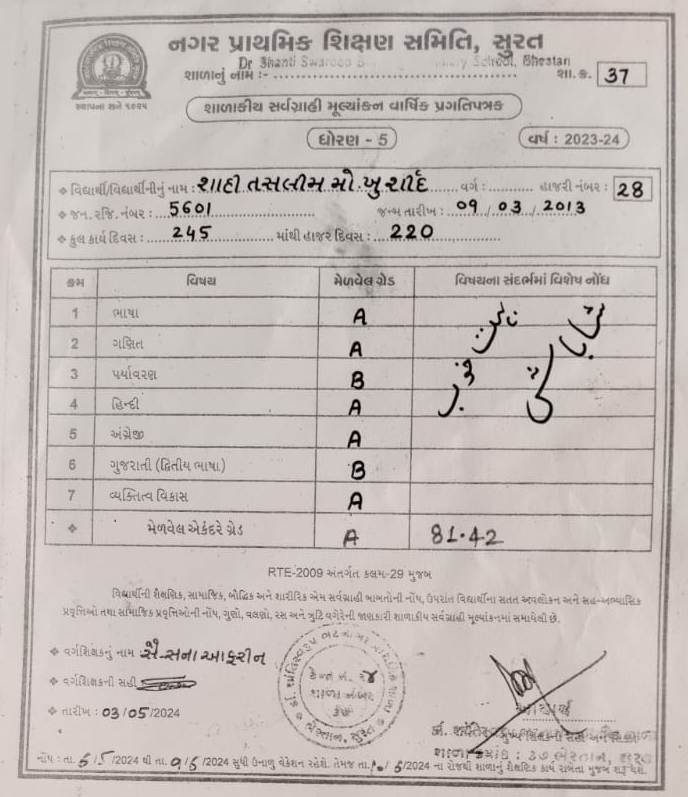 નગર પ્રાથમિક શિક્ષણ સમિતિ, સુરત
સ્થાપના સને ૧૯૨૫
Dr Shanti Swaroop School, Bhestan
શાળાનું નામ :- શા. ક્ર. 37
શાળાકીય સર્વગ્રાહી મૂલ્યાંકન વાર્ષિક પ્રગતિપત્રક
ધોરણ - 5 વર્ષ : 2023-24
❖ વિદ્યાર્થી/વિદ્યાર્થીનીનું નામ : શાહી તસલીમ મો. ખુર્શીદ વર્ગ : હાજરી નંબર : 28
❖ જન. રજિ. નંબર : 5601 જન્મ તારીખ : 09 / 03 / 2013
❖ કુલ કાર્ય દિવસ : 245 માંથી હાજર દિવસ : 220
ક્રમ વિષય મેળવેલ ગ્રેડ વિષયના સંદર્ભમાં વિશેષ નોંધ
1 ભાષા A
2 ગણિત A
3 પર્યાવરણ B
4 હિન્દી A
5 અંગ્રેજી A
6 ગુજરાતી (દ્વિતીય ભાષા) B
7 વ્યક્તિત્વ વિકાસ A
❖ મેળવેલ એકંદરે ગ્રેડ A 81.42
RTE-2009 અંતર્ગત કલમ-29 મુજબ
વિદ્યાર્થીની શૈક્ષણિક, સામાજિક, બૌદ્ધિક અને શારીરિક એમ સર્વગ્રાહી બાબતોની નોંધ, ઉપરાંત વિદ્યાર્થીના સતત અવલોકન અને સહ-અભ્યાસિક
પ્રવૃત્તિઓ તથા સામાજિક પ્રવૃત્તિઓની નોંધ, ગુણો, વલણો, રસ અને ત્રુટિ વગેરેની જાણકારી શાળાકીય સર્વગ્રાહી મૂલ્યાંકનમાં સમાયેલી છે.
❖ વર્ગશિક્ષકનું નામ સૈ. સના આફરીન
❖ વર્ગશિક્ષકની સહી
❖ તારીખ : 03/05/2024
કેન્દ્ર નં. ૨૪
શાળા નંબર
૩૭
ભેસ્તાન, સુરત
આચાર્ય
શાળા ક્રમાંક : ૩૭ ભેસ્તાન, સુરત
નોંધ : તા. 6/5/2024 થી તા. 9/6/2024 સુધી ઉનાળુ વેકેશન રહેશે. તેમજ તા. 10/6/2024 ના રોજથી શાળાનું શૈક્ષણિક કાર્ય રાબેતા મુજબ શરૂ થશે.